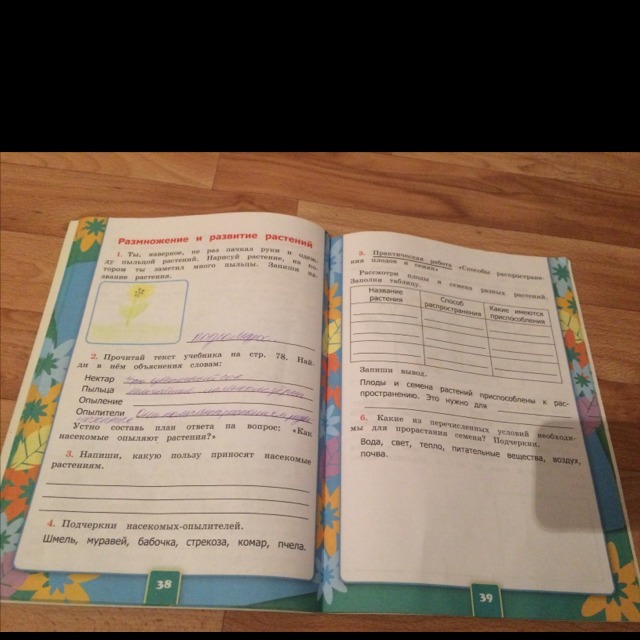 Размножение и развитие растений
1. Ты, наверное, не раз пачкал руки и одеж-
ду пыльцой растений. Нарисуй растение, на ко-
тором ты заметил много пыльцы. Запиши на-
звание растения.
2. Прочитай текст учебника на стр. 78. Най-
ди в нём объяснения словам:
Нектар
Пыльца
Опыление
Опылители
Устно составь план ответа на вопрос: «Как
насекомые опыляют растения?»
3. Напиши, какую пользу приносят насекомые
растениям.
4. Подчеркни насекомых-опылителей.
Шмель, муравей, бабочка, стрекоза, комар, пчела.
38
5. Практическая работа «Способы распростране-
ния плодов и семян»
Рассмотри плоды и семена разных растений.
Заполни таблицу.
Название растения
Способ распространения
Какие имеются приспособления
Запиши вывод.
Плоды и семена растений приспособлены к рас-
пространению. Это нужно для
6. Какие из перечисленных условий необходи-
мы для прорастания семени? Подчеркни.
Вода, свет, тепло, питательные вещества, воздух,
почва.
39